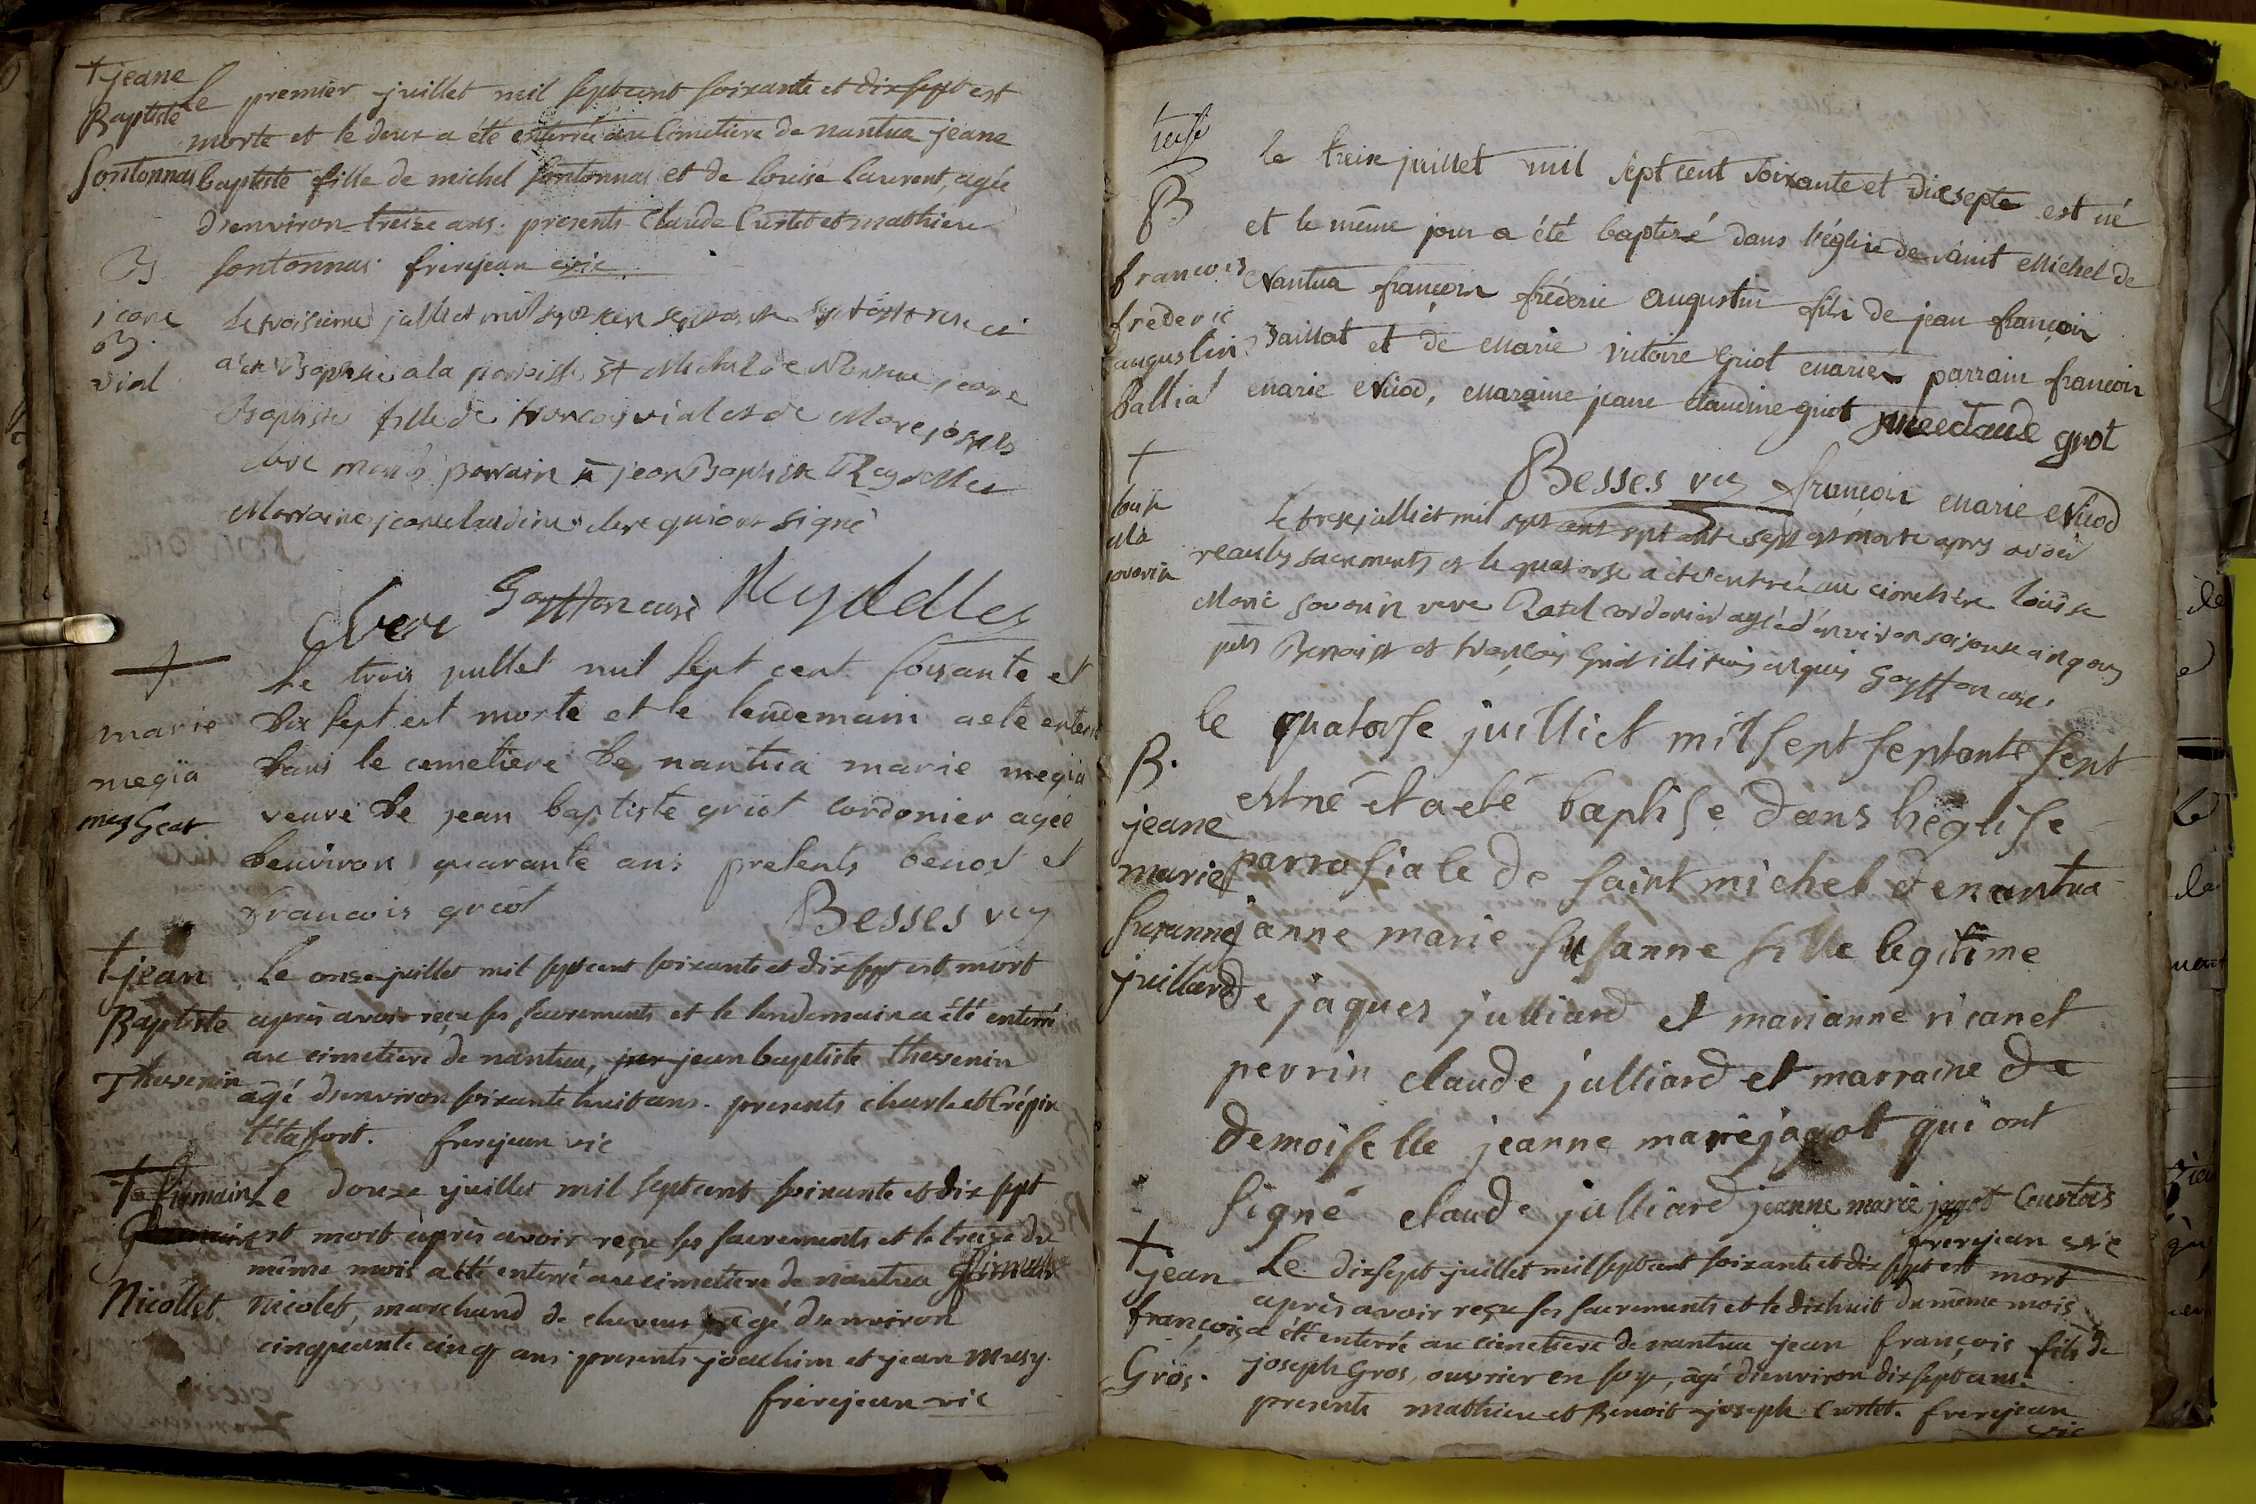 † jeane
Baptiste
Sontonnas
Le premier juillet mil septcent soixante et dixsept est
morte et le deux a été enterrée au Cimetiere de nantua jeane
baptiste fille de michel sontonnas et de louise laurent, agée
d'environ treize ans. presents Claude Curtet et mathieu
sontonnas. frerejean vic
B
jeane
B.
vial
Le troisieme julliet mil
a été Baptisée a la paroisse St Michel de Nantua jeane
Baptiste fille de francois vial et de Marie joseph
clere mariés parrain jean Baptiste Reydellet
Marraine jeane claudine clere qui ont signé
Clere Gouffon curé Reydellet
†
marie
megia
Le trois juillet mil sept cent soixante et
dix sept est morte et le lendemain a eté enterré
dans le cemetiere de nantua marie megia
veuve de jean baptiste griot cordonier agée
denviron quarante ans presents benoit et
francois griot Besses vic
† jean
Baptiste
Thevenin
Le onze juillet mil septcent soixante et dixsept est mort
après avoir reçu ses sacrements et le lendemain a été enterré
au cimetiere de nantua, jean baptiste thevenin
agé d'environ soixante huit ans. presents charle et Crépin
tétafort. frerejean vic
†
Nicollet
Le douze juillet mil septcent soixante et dix sept
est mort après avoir reçu ses sacrements et le treize du
même mois a été enterré au cimetiere de nantua
nicolet, marchand de cheveux, agé d'environ
cinquante cinq ans. presents joachim et jean musy.
frerejean vic
B
francois
frederic
augustin
Ballial
le treize juillet mil sept cent soixante et dixsepte est né
et le même jour a été baptisé dans l'église de saint Michel de
Nantua françois fréderic Augustin fils de jean françois
Baillat et de Marie victoire Griot mariés parrain francois
Marie Nivod, Maraine jeane claudine griot griot
Besses vic françois Marie Nivod
†
louise
Ma
savarin
Le treise julliet mil sept cent septante sept est morte apres avoir
receu les sacrements et le quatorze a été enterrée au cimetiere louise
Marie savarin veve Ratel cordonier agée d'environ soisente cinq ans
Benoist et francois Griot Gouffon curé.
B.
jeane
marie
susanne
juillard
le quatorse juilliet mil sept septante sept
est né et a eté baptisé dans l'église
parrosiale de saint michel de nantua
janne marie susanne fille legitime
de jaques julliard et marianne ricanet
perrin claude julliard et marraine de
demoiselle jeanne marie jagot qui ont
signé claude julliard jeanne marie jagot Courtois
frerejean vic
† jean
françois
Gros.
Le dixsept juillet mil septcent soixante et dixsept est mort
après avoir reçu ses sacrements et le dixhuit du même mois
a été enterré au cimetiere de nantua jean françois fils de
joseph Gros, ouvrier en soye, âgé d'environ dixsept ans.
presents mathieu et Benoit joseph Curtet. frerejean
vic